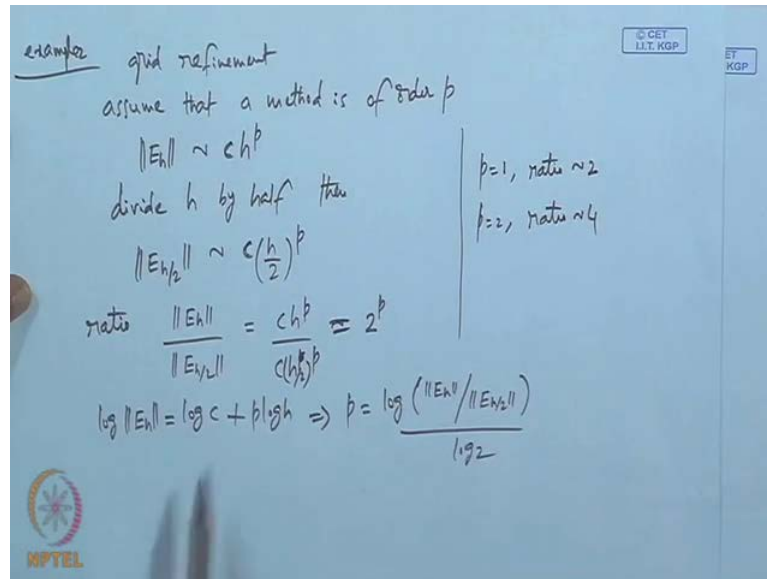 example grid refinement
assume that a method is of order p
‖Eh‖ ~ c h^p
divide h by half then
‖E_{h/2}‖ ~ c(h/2)^p
ratio ‖Eh‖ / ‖E_{h/2}‖ = c h^p / c(h/2)^p = 2^p
log ‖Eh‖ = log c + p log h ⇒ p = log (‖Eh‖ / ‖E_{h/2}‖) / log 2
p=1, ratio ~2
p=2, ratio ~4
© CET
I.I.T. KGP
ET
KGP
NPTEL